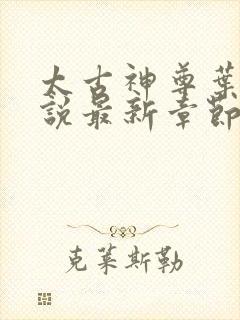 太古神尊葉
說最新章節
克萊斯勒